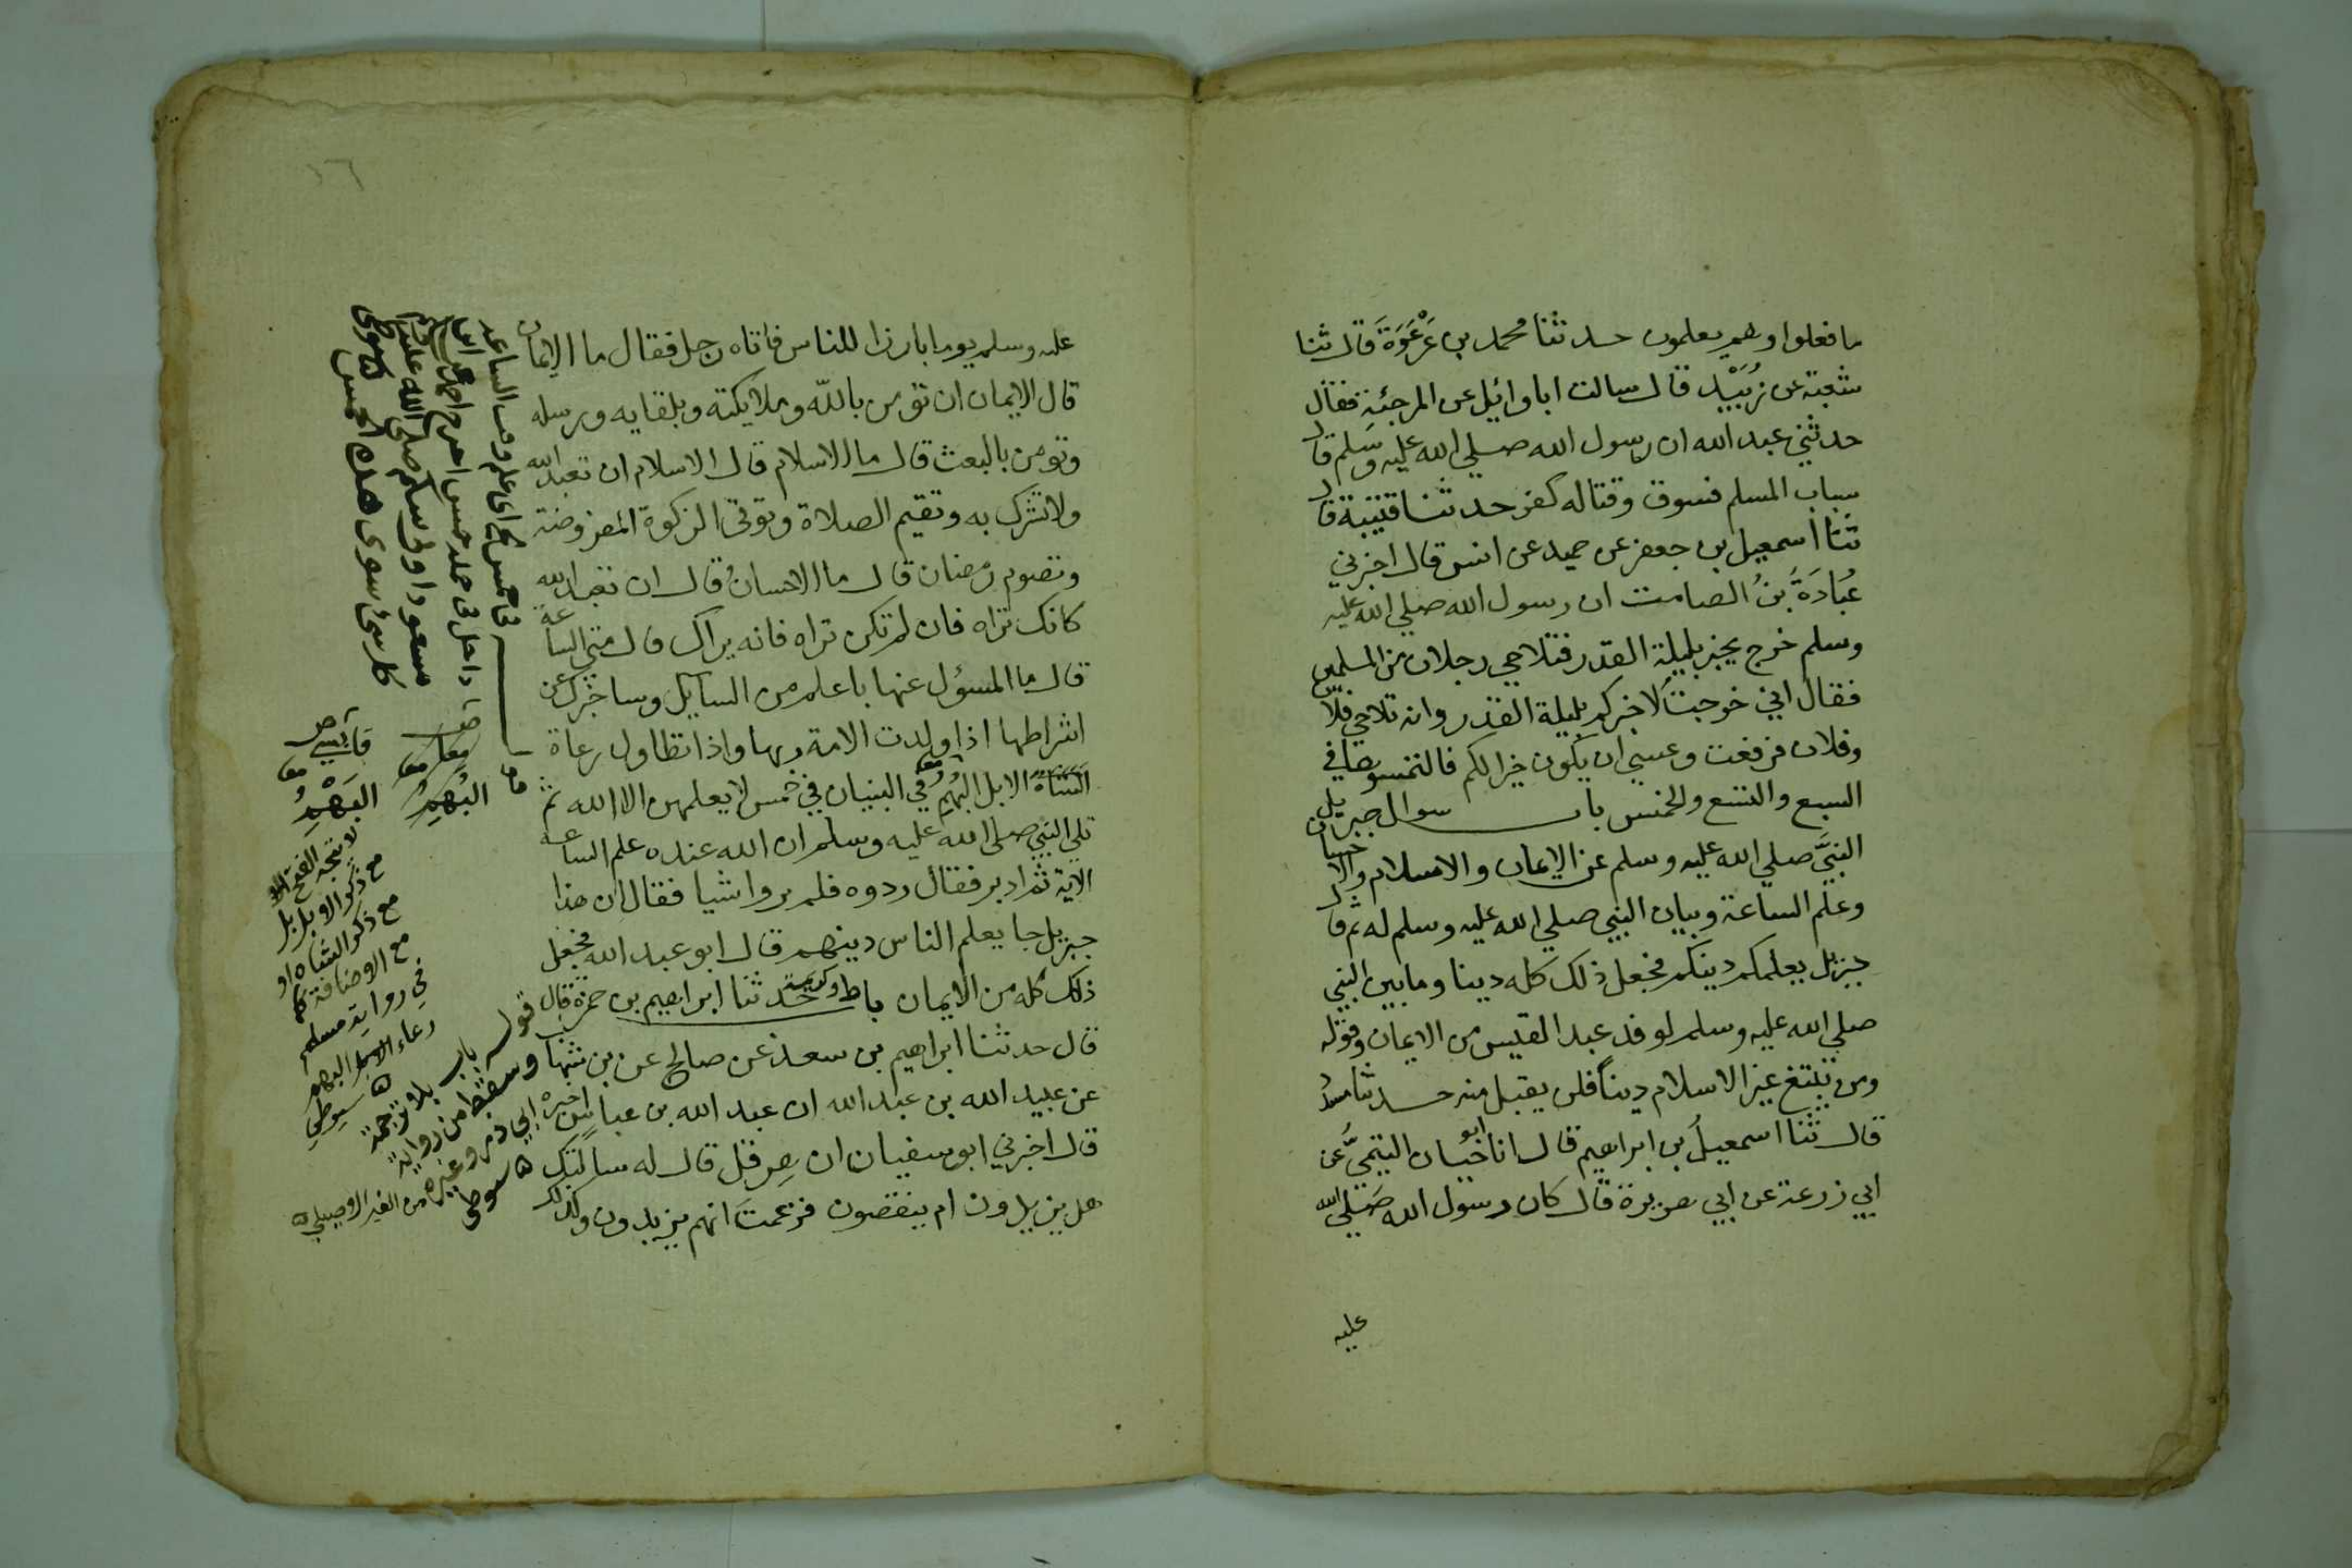 ما فعلوا وهم يعلمون حدثنا محمد بن عَرْعَرَةَ قال ثنا
شعبة عن زُبَيْد قال سالت ابا وائل عن المرجئة فقال
حدثني عبد الله ان رسول الله صلي الله عليه وسلم قال
سباب المسلم فسوق وقتاله كفر حدثنا قتيبة قال
ثنا اسمعيل بن جعفر عن حميد عن انس قال اخبرني
عُبَادَةَ بْنُ الصامت ان رسول الله صلي الله عليه
وسلم خرج يخبر بليلة القدر فتلاحي رجلان من المسلمين
فقال اني خرجت لاخبركم بليلة القدر وانه تلاحي فلان
وفلان فرفعت وعسي ان يكون خيرا لكم فالتمسوها في
السبع والتسع والخمس باب سوال جبريل
النبيَّ صلي الله عليه وسلم عن الايمان والاسلام والاحسان
وعلم الساعة وبيان النبي صلي الله عليه وسلم له ثم قال
جبريل يعلمكم دينكم فجعل ذلك كله دينا وما بين النبي
صلي الله عليه وسلم لوفد عبد القيس من الايمان وقوله
ومن يبتغ غير الاسلام دينا فلن يقبل منه حدثنا مسدد
قال ثنا اسمعيل بن ابراهيم قال انا ابو حيان التيمي عن
ابي زرعة عن ابي هريرة قال كان رسول الله صلي الله
عليه
١٦
عليه وسلم يوما بارزا للناس فاتاه رجل فقال ما الايمان
قال الايمان ان تومن بالله وملايكته وبلقايه ورسله
وتومن بالبعث قال ما الاسلام قال الاسلام ان تعبد الله
ولا تشرك به وتقيم الصلاة وتوتي الزكوة المفروضة
وتصوم رمضان قال ما الاحسانُ قال ان تعبد الله
كانك تراه فان لم تكن تراه فانه يراك قال متي الساعة
قال ما المسؤل عنها باعلم من السايل وساخبرك عن
اشراطها اذا ولدت الامة ربها واذا تطاول رعاة
الشاة الابل البُهمُ في البنيان في خمس لا يعلمهن الا الله ثم
تلي النبي صلي الله عليه وسلم ان الله عنده علم الساعة
الاية ثم ادبر فقال ردوه فلم يروا شيا فقال ان هذا
جبريل جا يعلم الناس دينهم قال ابو عبد الله فجعل
ذلك كله من الايمان باب حدثنا ابراهيم بن حمزة قال
قال حدثنا ابراهيم بن سعد عن صالح عن بن شهاب
عن عبيد الله بن عبد الله ان عبد الله بن عباس اخبره
قال اخبرني ابو سفيان ان هرقل قال له سالتك
هل يزيدون ام ينقصون فزعمتَ انهم يزيدون وكذلك
البُهمِ
البَهْمِ
لا يتجه الفتح الا
مع ذكر الابل بل
مع ذكر الشاة او
مع الاضافة كما
في رواية مسلم
رعاء البهم
سيوطي
قوله باب بلا ترجمة
وسقط من رواية
ابي ذر وغيره
سيوطي